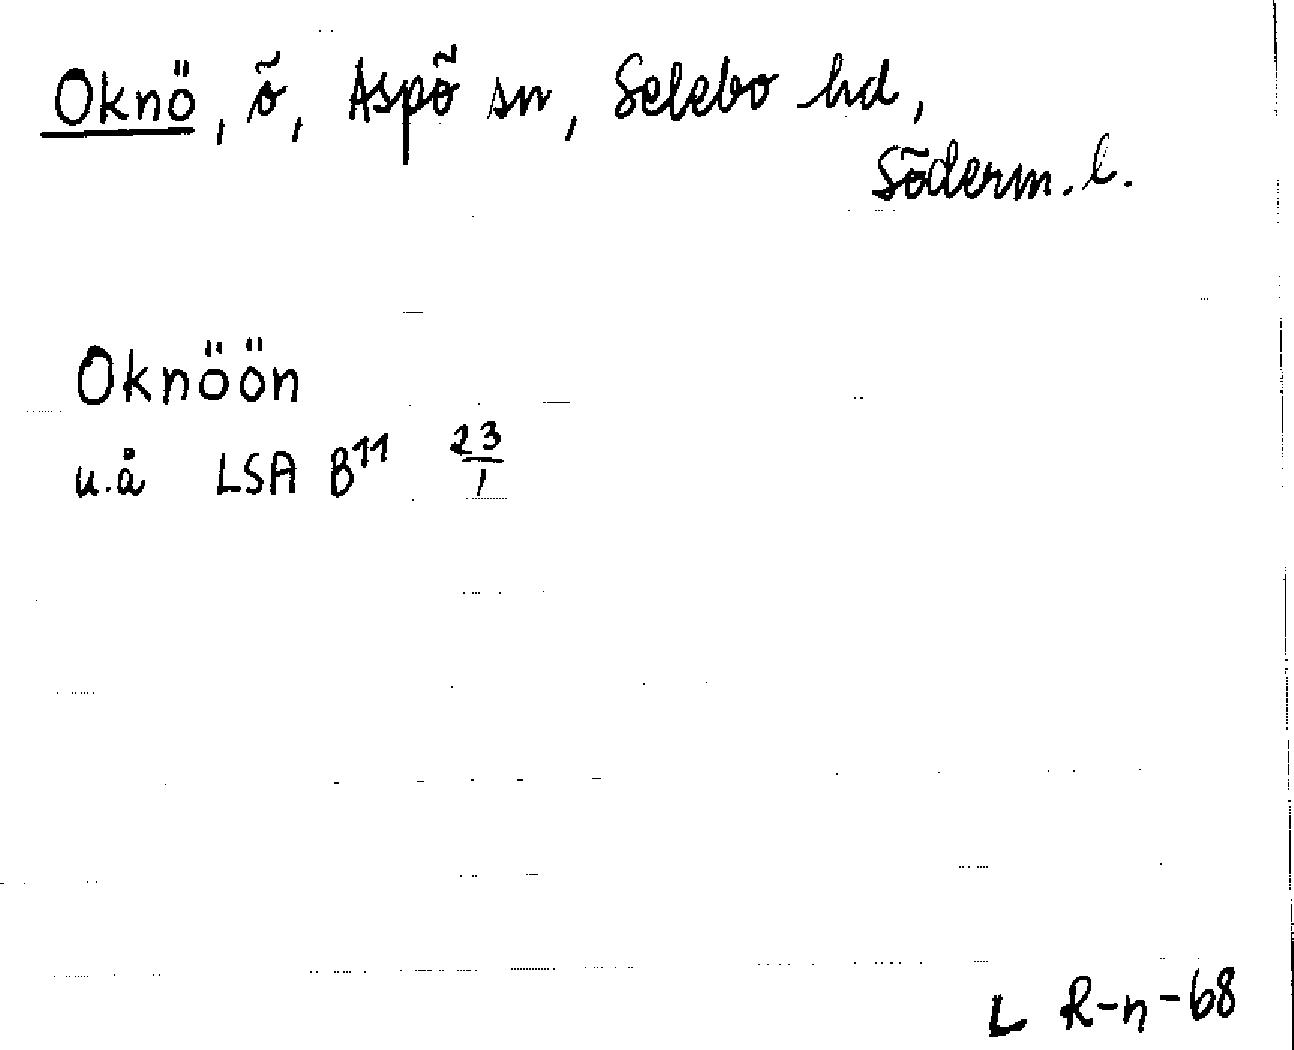 Oknö, ö, Aspö sn, Selebo hd,
Söderm. l.
Oknöön
u.å LSA B¹¹ 23/1
L R-n-68